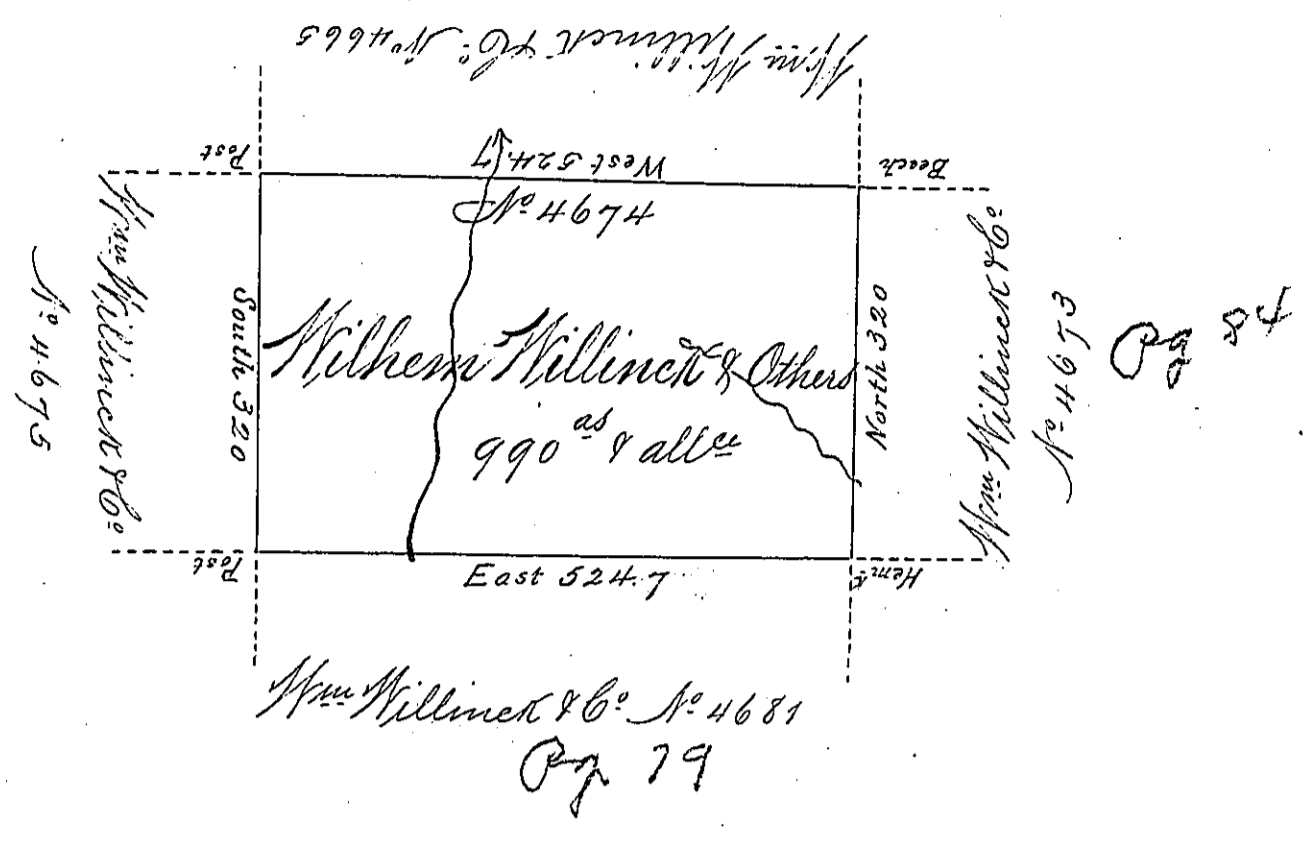 Wm Willinck & Co. No 4665
Post
West 524.7
Beach
No 4674
Wm Willinck & Co.
No 4675
South 320
Wilhem Willinck & Others
990 as & allce
North 320
Wm Willinck & Co.
No 4673
Pg 84
Post
East 524.7
Hemk
Wm Willinck & Co. No 4681
Pg 79